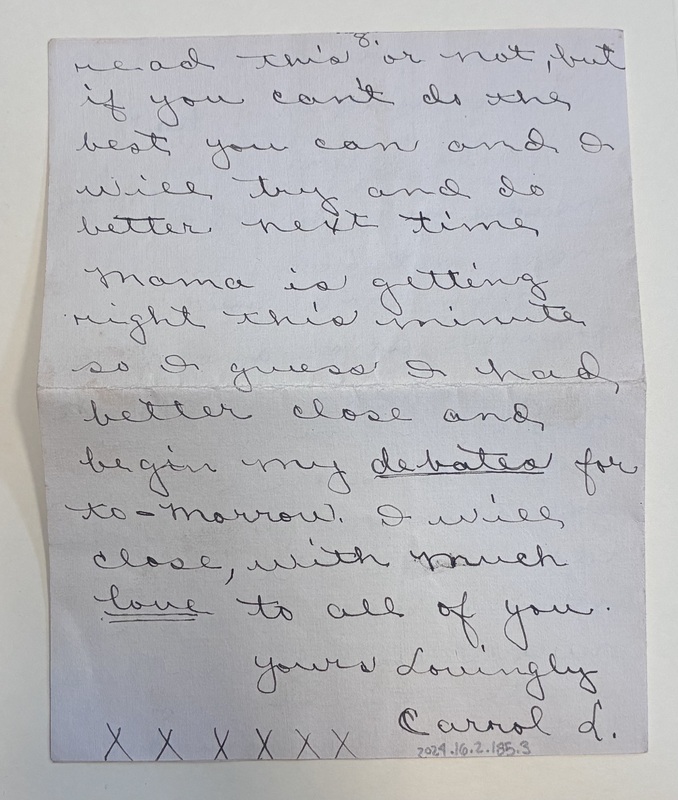 8.
read this or not, but
if you can't do the
best you can and I
will try and do
better next time
Mama is getting
right this minute
so I guess I had
better close and
begin my debates for
to-morrow. I will
close, with much
love to all of you.
yours Lovingly
Carrol L.
X X X X X X
2024.16.2.185.3